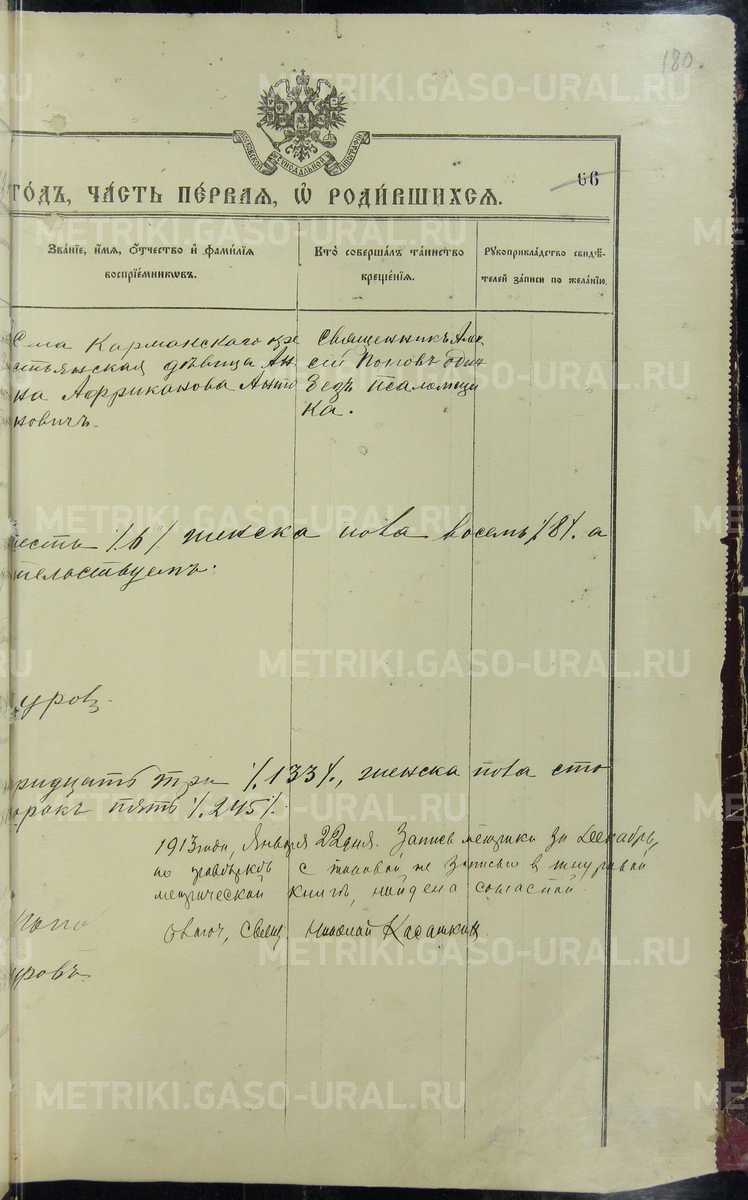 180.
МОСКОВСКОЙ СѴНОДАЛЬНОЙ ТИПОГРАФІИ
66
ГО́ДЪ, ЧА́СТЬ ПЕ́РВАЯ, Ѡ҆ РОДИ́ВШИХСЯ.
Зва́нїе, и҆́мя, ѻ҆́тчество и҆ фами́лїя
воспрїе́мникѡвъ.
Кто̀ соверша́лъ та́инство
креще́нїя.
Рꙋкоприкла́дство свидѣ́-
телей за́писи по жела́нїю.
Села Карманскаго кре
стьянская дѣвица Ан
на Африканова Анто
новичъ.
Священникъ Але
ксій Поповъ
безъ псаломщи
ка.
есть %6% женска пола восемь %8%. а
тельствуемъ:
уровъ
ридцать три %133%, женска пола сто
орокъ пять %245%.
1913 года, Января 22 дня. Запись метрики за Декабрь,
по с таковой же записью в шнуровой
метрической книгѣ, найдена согласной.
Свящ. Николай Касаткин.
уровъ
METRIKI.GASO-URAL.RU